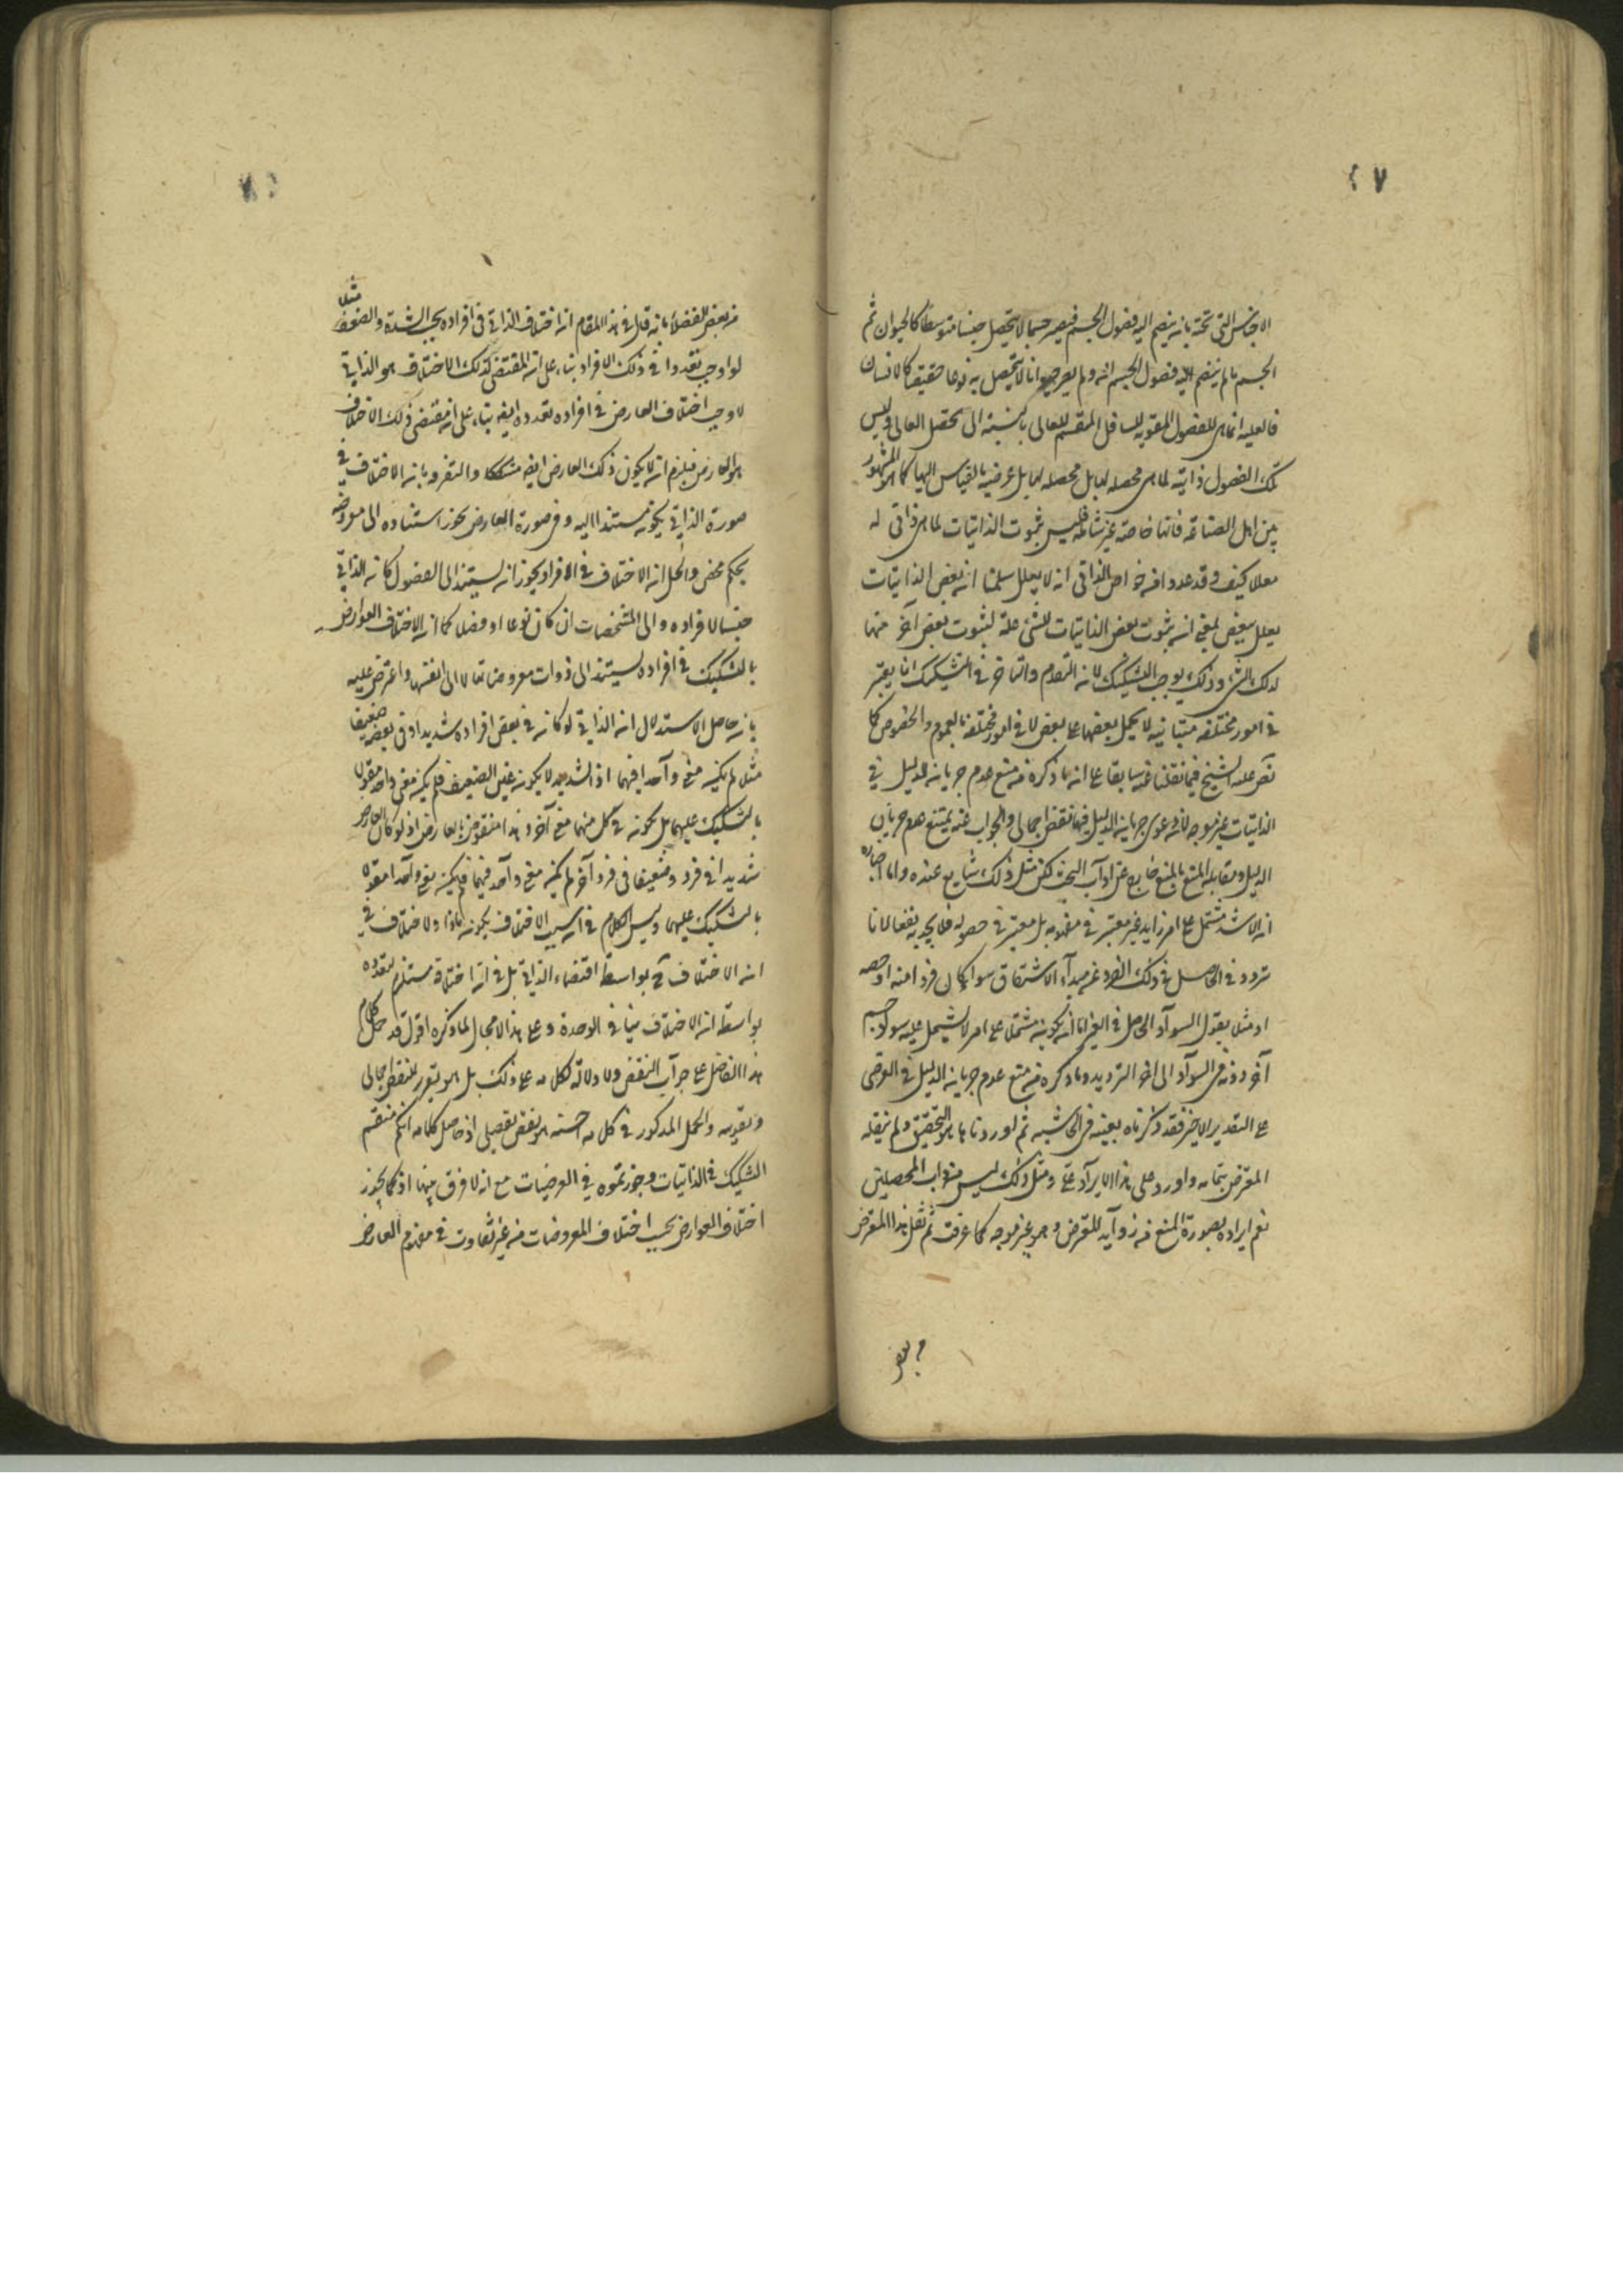 ٤٧
الاجناس التى تحته بان ينضم اليه فصول الجسم فيصير جسما لا يتحصل جنسا متوسطا كالحيوان ثم
الجسم ما لم ينضم اليه فصول الجسم انه ولم يصر حيوانا لا يتحصل به نوعا حقيقيا كالانسان
فالعلية انما هى للفصول المقومة للسافل المقسم للعالى بالنسبة الى تحصل العالى وليس
تلك الفصول ذاتية لما هى محصلة لها بل محصلة لها بل عرضية بالقياس اليها كما هو المشهور
بين اهل الصناعة فانها خاصة غير شاملة فليس ثبوت الذاتيات لما هى ذاتى له
معللا كيف وقد عدوا من خواص الذاتى انه لا يعلل سلمنا ان بعض الذاتيات
يعلل ببعض بمعنى ان ثبوت بعض الذاتيات للشئ علة لثبوت بعض آخر منها
لذلك الشئ وذلك لا يوجب التشكيك لان التقدم والتأخر فى التشكيك انما يعتبر
فى امور مختلفة متباينة لا يحمل بعضها على بعض لا فى امور مختلفة بالعموم والخصوص كما
نص عليه الشيخ فيما نقلنا عنه سابقا على ان ما ذكره من منع عدم جريان الدليل فى
الذاتيات غير موجه لان دعوى جريان الدليل فيها نقض اجمالى والجواب عنه بمنع عدم جريان
الدليل ومقابلة المنع بالمنع خارج عن آداب البحث لكن مثل ذلك شايع عنده واما اختياره
ان الاشد مشتمل على امر زايد غير معتبر فى مفهومه بل معتبر فى حصوله فلا يجديه نفعا لانا
نردد فى الحاصل فى ذلك الفرد من مبدأ الاشتقاق سواء كان فردا منه او حصة
او مثلا يقول السوآد الحاصل فى القير اما ان يكون مشتملا على امر لا يشتمل عليه سواد جسم
آخر دونه فى السوآد الى آخر الترديد وما ذكره من منع عدم جريان الدليل فى العرضى
على التقدير الاخير فقد ذكرناه بعينه فى الحاشية ثم اوردنا ما هو التحقيق ولم ينقله
المعترض بتمامه واورد على هذا الايرآد على ومثل ذلك ليس من داب المحصلين
نعم ايراده بصورة المنع من زوآيد للمعترض وهو غير موجه كما عرفت ثم نقل هذا المعترض
٤٨
من بعض الفضلا بانه قال فى هذا المقام ان اختلاف الذاتى فى افراده بحسب الشدة والضعف مثلا
لو اوجب تعددا فى ذلك الافراد بناء على ان المقتضى لذلك الاختلاف هو الذاتى
لاوجب اختلاف العارض فى افراده تعدده ايضه بناء على ان مقتضى ذلك الاختلاف
هو العارض فيلزم ان لا يكون ذلك العارض ايضه مشككا والتفرقه بان الاختلاف فى
صورة الذاتى يكون مستندا اليه وفى صورة العارض يجوز استناده الى معروضه
تحكم محض والحل ان الاختلاف فى الافراد يجوز ان يستند الى الفصول كان الذاتى
جنسا لافراده والى المشخصات ان كان نوعا او فصلا كما ان الاختلاف العوارض
بالتشكيك فى افراده يستند الى ذوات معروضاتها لا الى انفسها واعترض عليه
بان حاصل الاستدلال ان الذاتى لو كان فى بعض افراده شديدا وفى بعضه ضعيفا
مثلا لم يكن معنى وآحدا فيهما اذ الشديد لا يكون عين الضعيف فلم يكن معنى واحد مقولا
بالتشكيك عليهما بل يكون فى كل منهما معنى آخر وهذا منقوض بالعارض اذ لو كان العارض
شديدا فى فرد وضعيفا فى فرد آخر لم يكن معنى وآحد فيهما فلم يكن معنى وآحدا مقولا
بالتشكيك عليهما وليس الكلام فى ان سبب الاختلاف يكون ماذا ولا خلاف فى
ان الاختلاف ح بواسطة اقتضاء الذاتى بل فى ان اختلافه مستلزم لتعدده
بواسطة ان الاختلاف ينافى الوحدة وعلى هذا لا مجال لما ذكره اقول قد حمل كلام
هذا الفاضل على جرآب النقض ولا دلالة لكلامه على ذلك بل هو تقرير للنقض الاجمالى
وتقويمه والحمل المذكور فى كلامه احسنه هو نقض تفصيلى اذ حاصل كلامه انكم منعتم
التشكيك فى الذاتيات وجوزتموه فى العرضيات مع انه لا فرق بينهما اذ كما يجوز
اختلاف العوارض بحسب اختلاف المعروضات من غير تفاوت فى مفهوم العارض